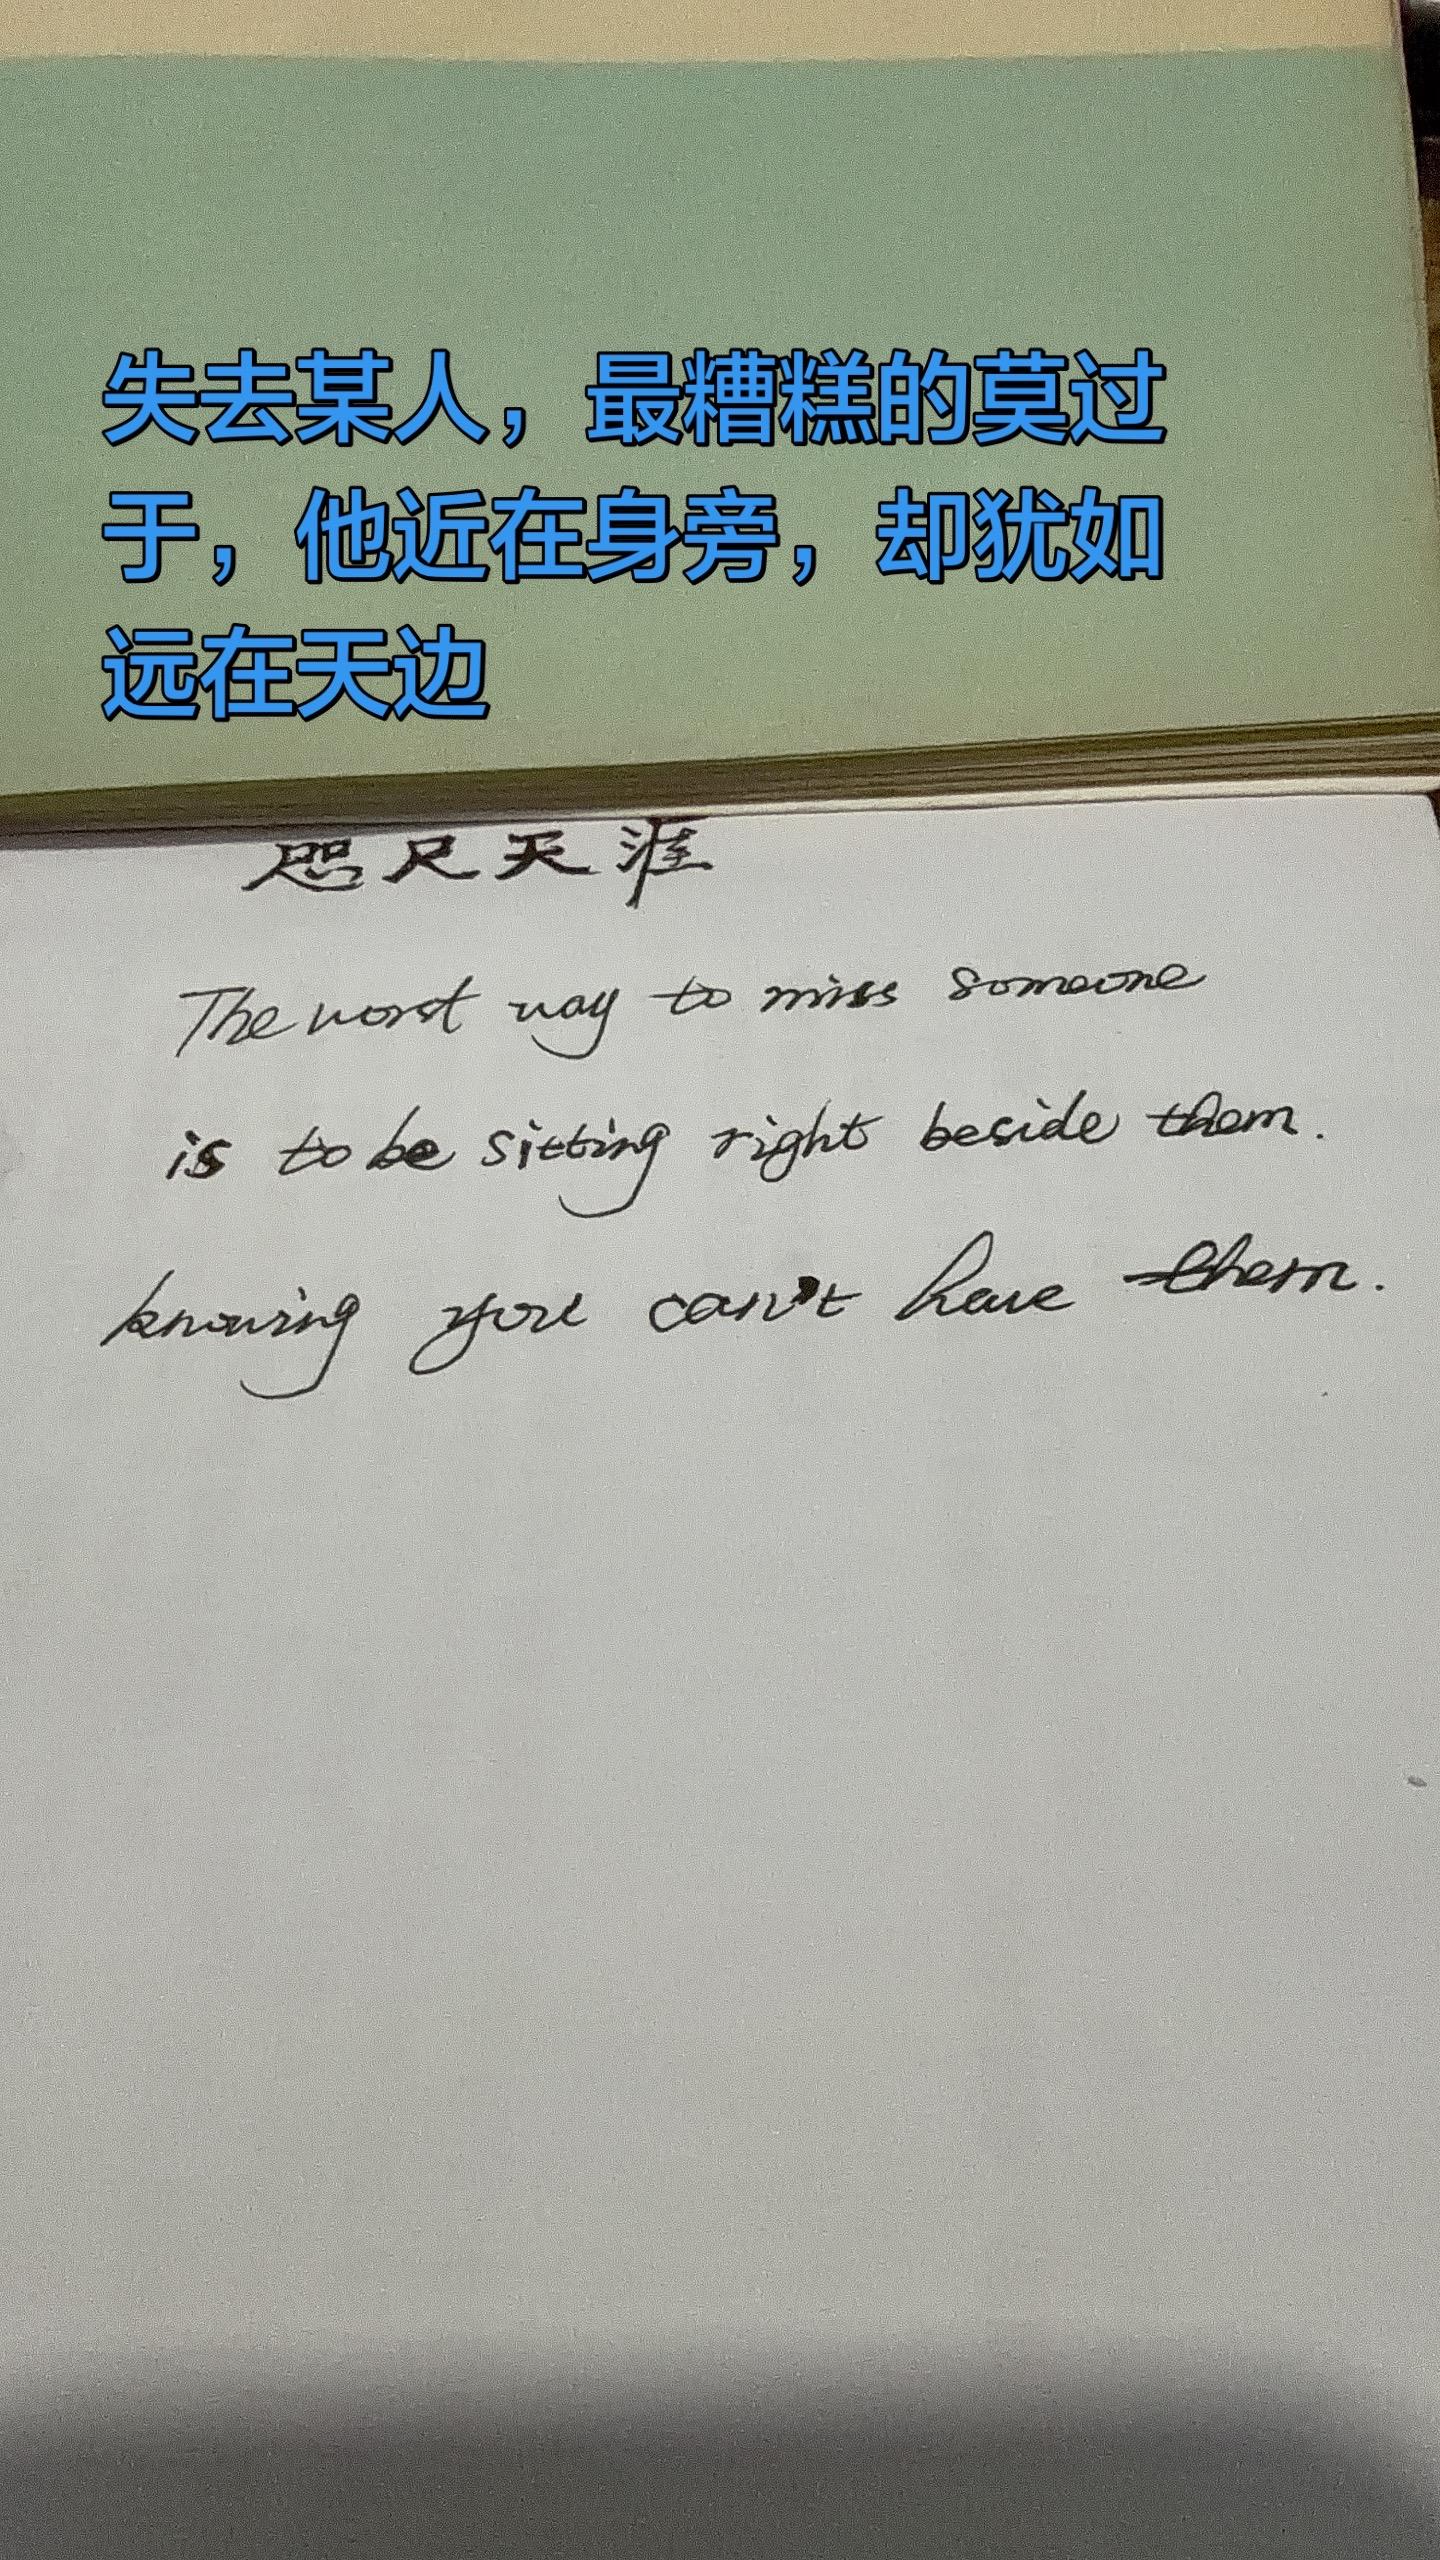 失去某人，最糟糕的莫过
于，他近在身旁，却犹如
远在天边
咫尺天涯
The worst way to miss someone
is to be sitting right beside them.
knowing you can't have them.